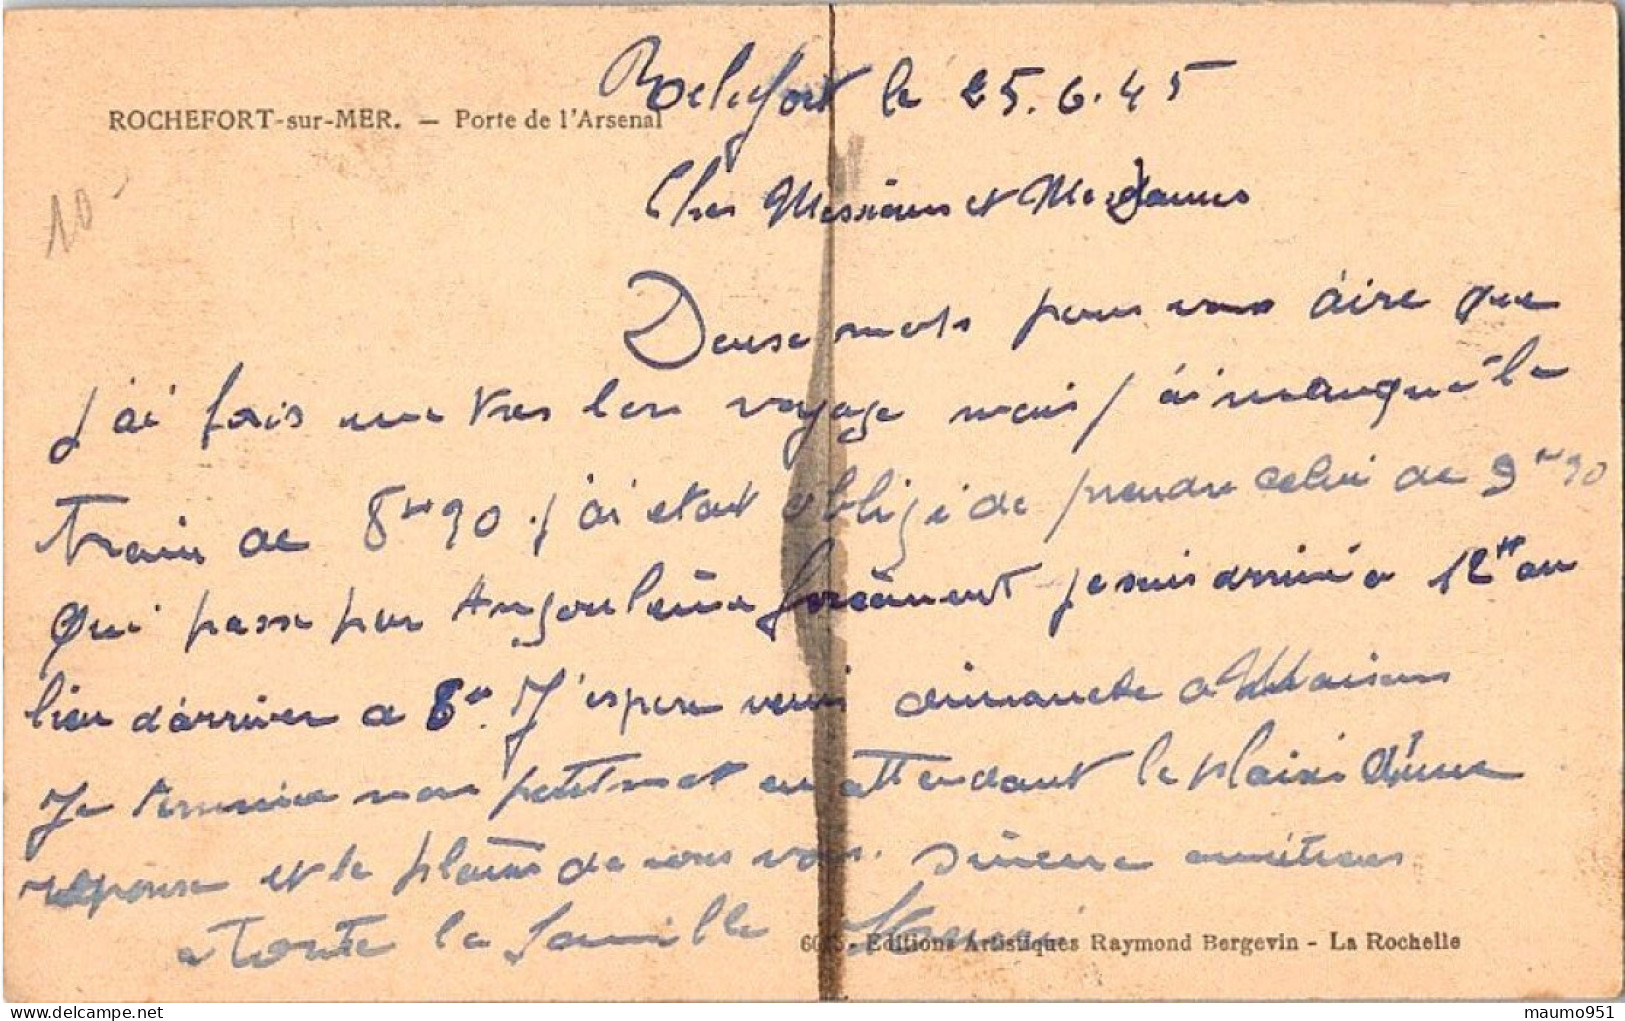 ROCHEFORT-sur-MER. — Porte de l'Arsenal
Rochefort le 25.6.45
10-
Cher Messieurs et Mesdames
Deuse mots pour vous dire que
j'ai fais un tres bon voyage mais j'ai manqué le
train de 8H 90. j'ai etait obligé de prendre celui de 9H 90
qui passe par Angoulème forcément je suis arrivé a 12H au
lieu d'arriver a 8H. J'espere venir dimanche a
Je termine mon petit mot en attendant le plaisir d'une
reponse et le plaisir de vous voir. Sincere amitiers
a toute la famille
Editions Artistiques Raymond Bergevin - La Rochelle
maumo951